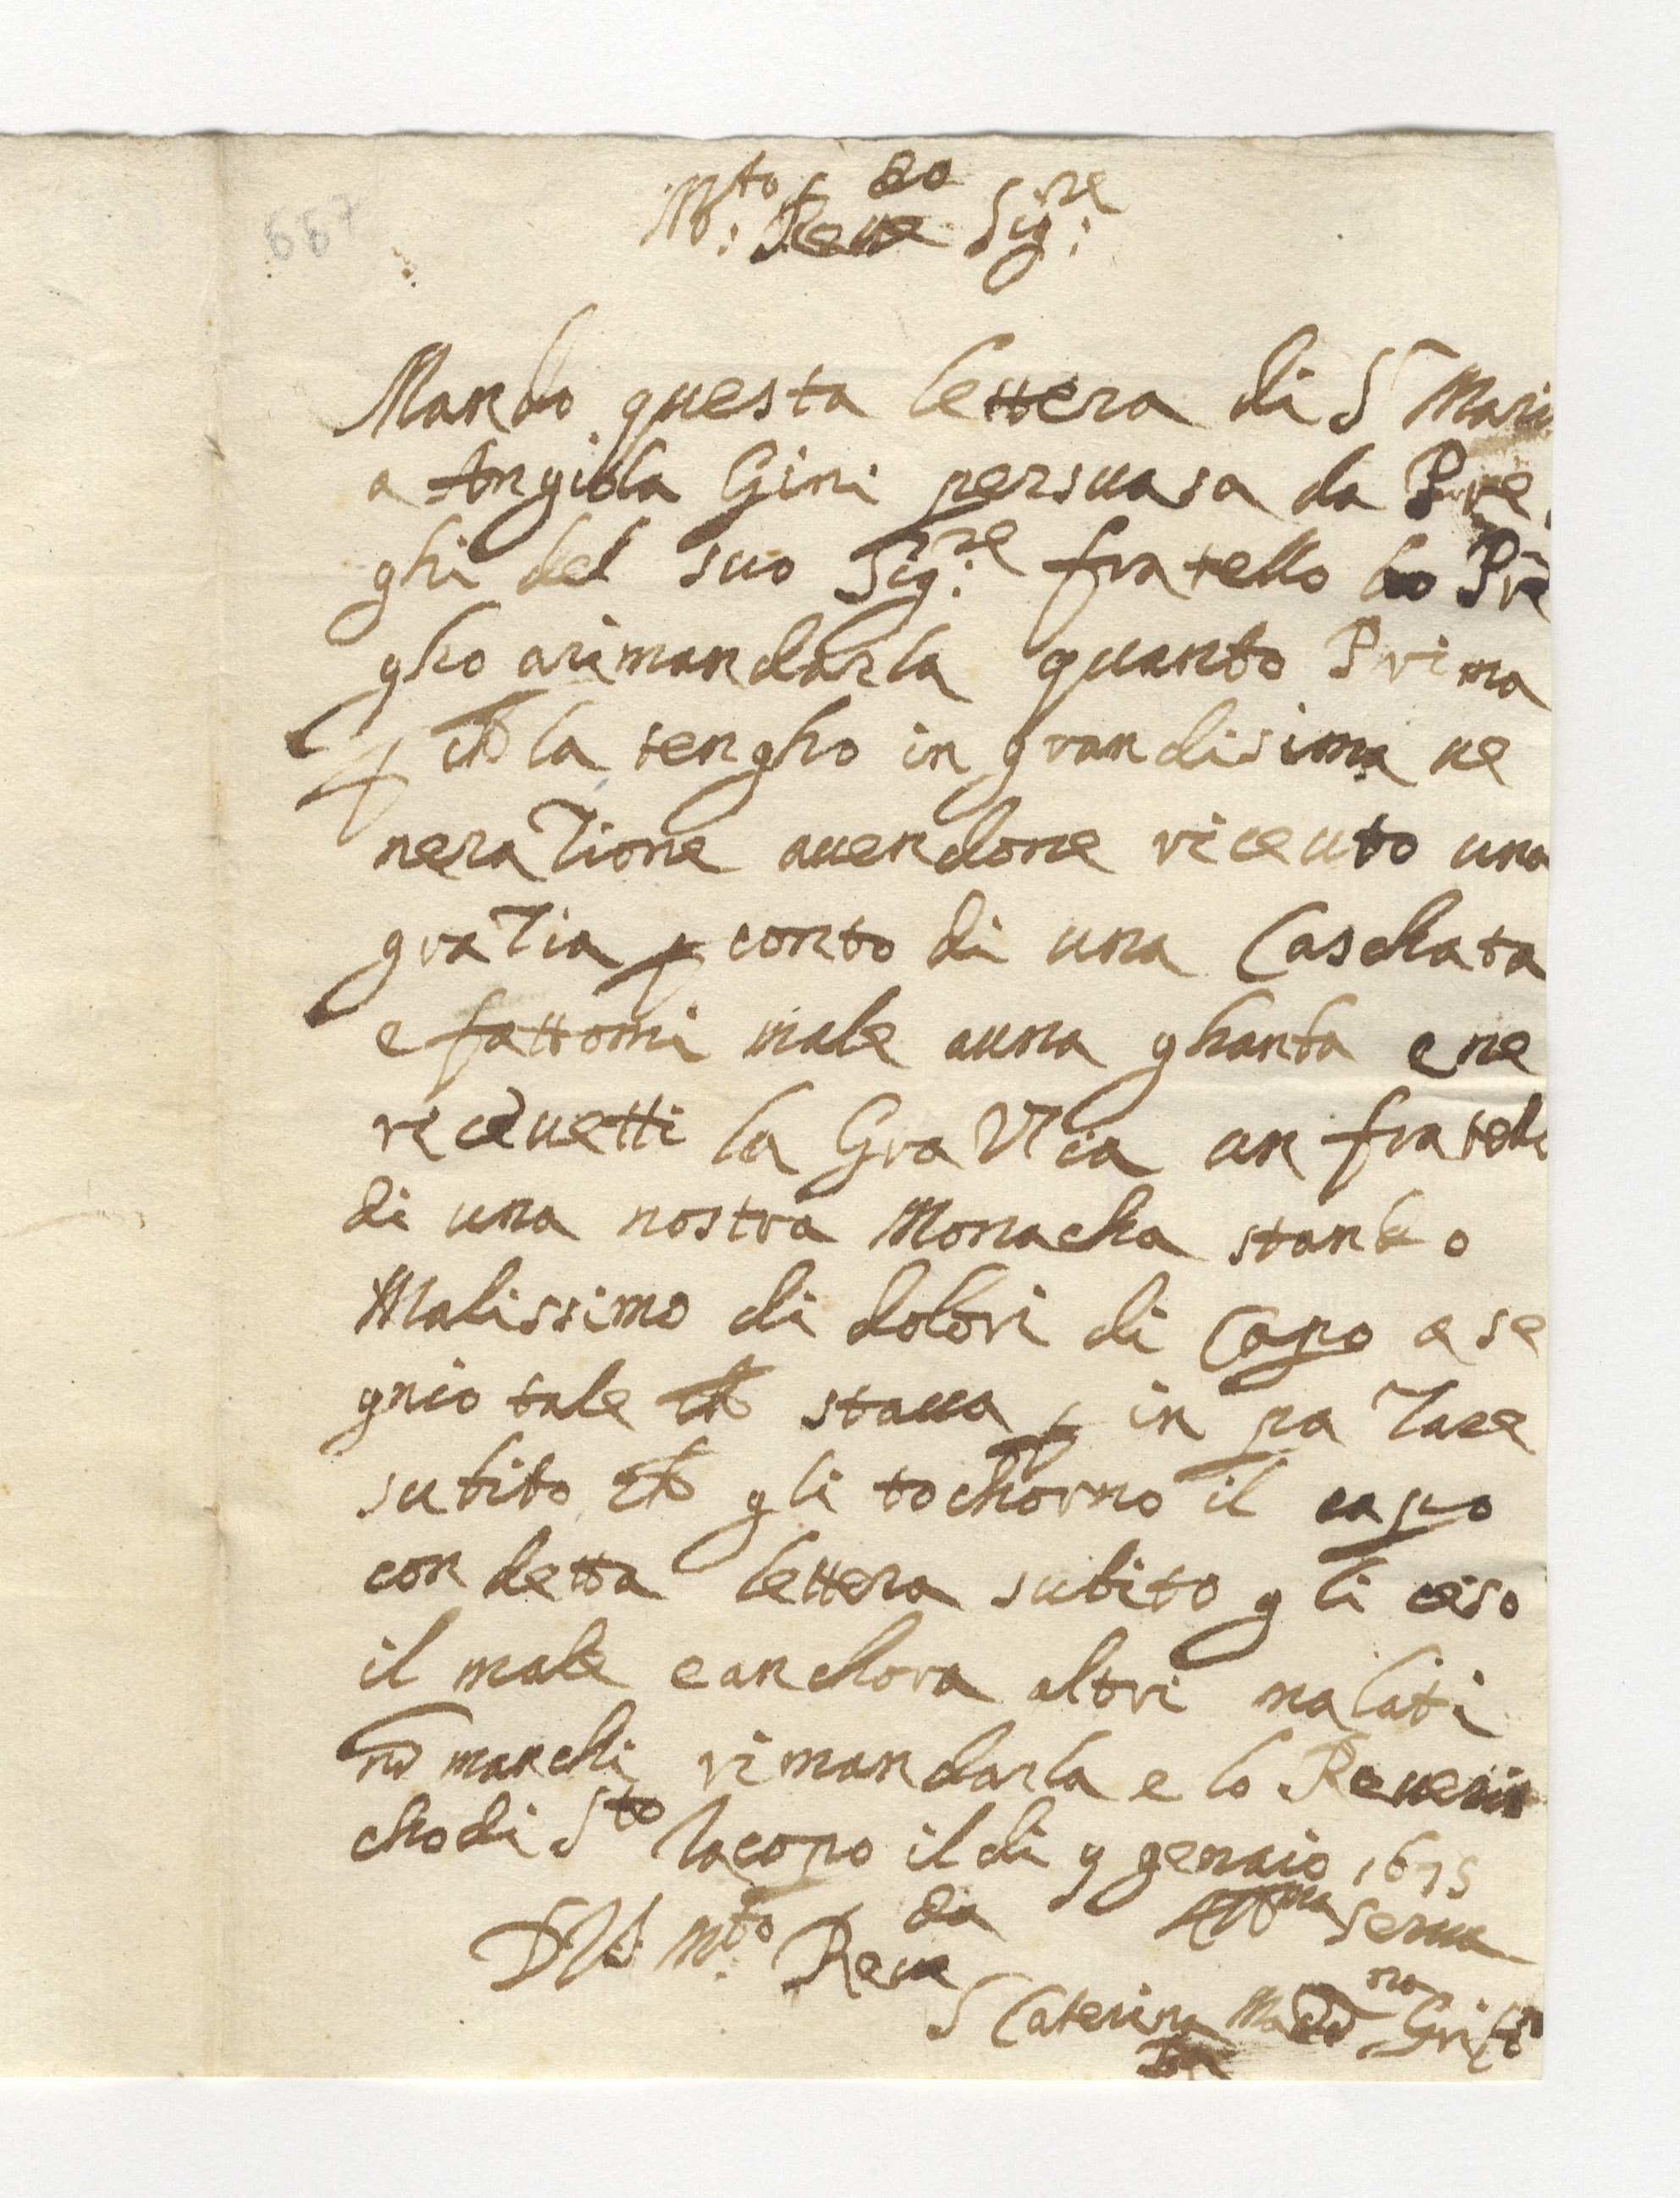 667
M:to Reve:do Sig:re
Mando questa lettera di S Mari
a Angiola Gini persuasa da Pre
ghi del suo Sig:re fratello lo Pre
gho arimandarla quanto Prima
p ch la tengho in grandisima ve
neratione auendone riceuto una
gratia p conto di una Caschata
e fattomi male auna ghanba e ne
riceuetti la Gratia un fratello
di una nostra Monacha stando
Malissimo di dolori di Capo a se
gnio tale ch staua p in pazare
subito ch gli tochorno il capo
con detta lettera subito gli ciso
il male e anchora altri malati
nō manchi rimandarla e lo Reueris
cho di S.to Iacopo il di 9 genaio 1675
D V S M:to Reue da Aff ma Serua
S Caterina Madd na Grifo